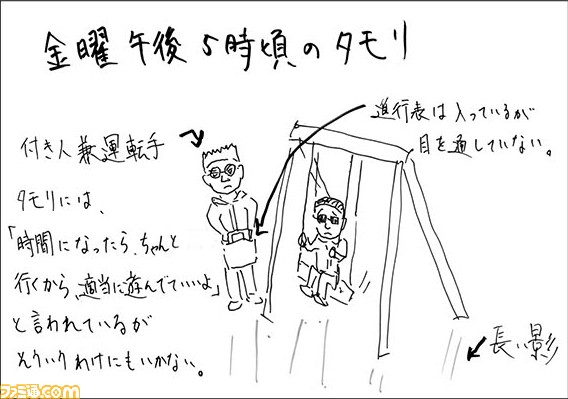 金曜午後5時頃のタモリ
進行表は入っているが
目を通していない。
付き人兼運転手
タモリには、
「時間になったら、ちゃんと
行くから、適当に遊んでていいよ」
と言われているが
そういうわけにもいかない。
長い影
ファミ通.com